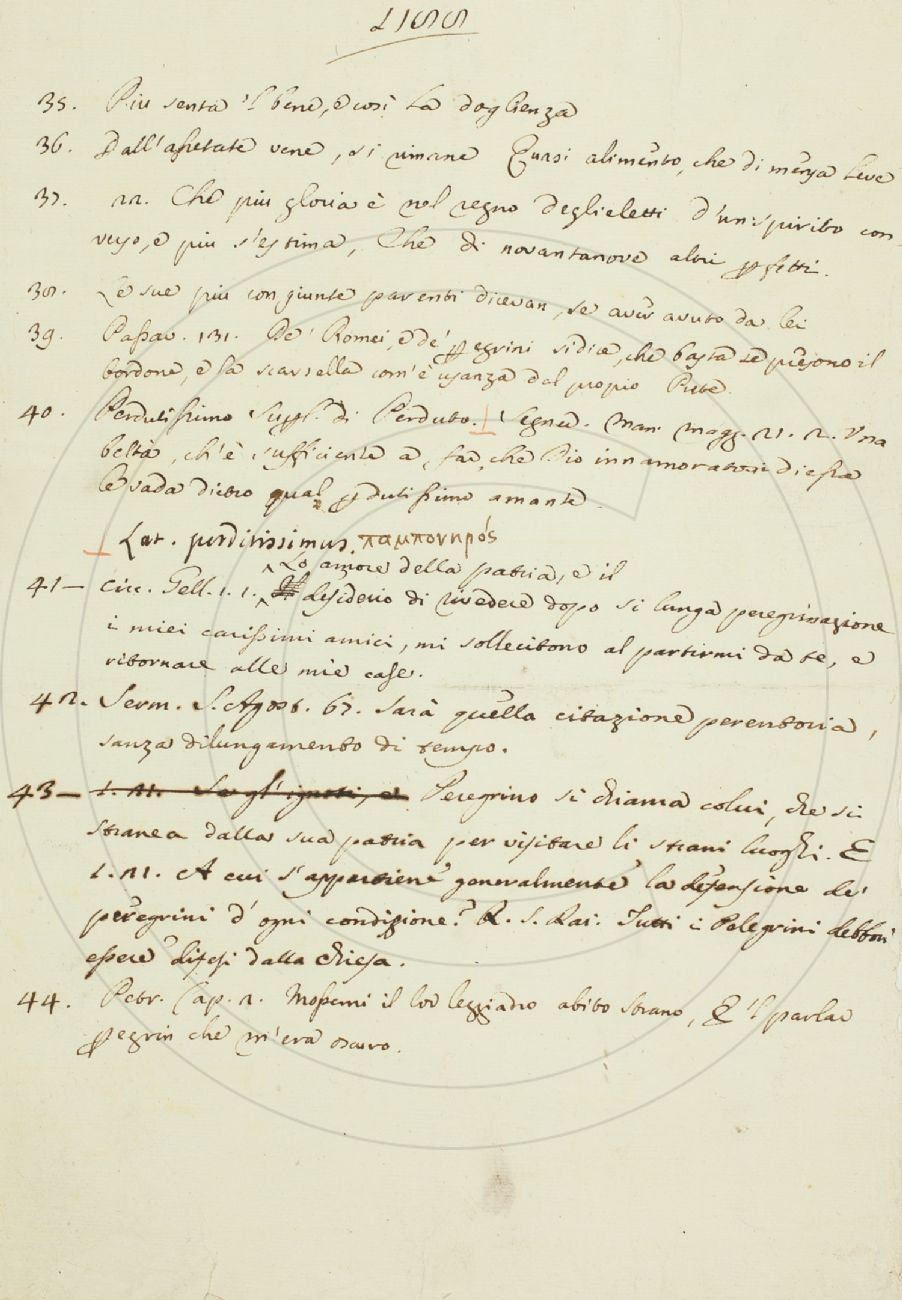 1155
35. Piu senta 'l bene, e così la doglienza
36. Dall'assetate vene, si rimane Quasi alimento, che di mensa leve
37. 22. Che piu gloria è nel regno deglieletti d'un spirito con-
verso, e piu s'estima, Che di novantanove altri pfetti.
38. Le sue più congiunte parenti dicevan, se aver avuto da lei
39. Passav. 131. De' Romei, e de' pegrini si dice, che basta se prejono il
bordone, e la scarsella com'è usanza dal propio Prete.
40. Perdutissimo Suppl. di Perduto. ⊥ Segner. Mann. Magg. 21. 2. Una
beltà, ch'è sufficiente a far, che Dio innamoratosi di essa
le vada dietro qual pdutissimo amante.
⊥ Lat. perditissimus. παμπονηρός
Lo amore della patria, e il
41— Circ. Gell. 1. 1. desiderio di rivedere dopo si lunga peregrinazione
i miei carissimi amici, mi sollecitono al partirmi da te, e
ritornare alle mie case.
42. Serm. S. Agost. 67. Sarà quella citazione perentoria,
sanza dilungamento di tempo.
43— 1. 21. Se gl' ignoti, e Peregrino si chiama colui, che si
stranea dalla sua patria per visitare li strani luoghi. E
1. 21. A cui s'appartiene generalmente la difensione de'
peregrini d'ogni condizione? R. S. Rai. Tutti i Pelegrini debbon
essere difesi dalla Chiesa.
44. Petr. Cap. 2. Mossemi il lor leggiadro abito strano, E 'l parlar
pegrin che m'era oscuro.